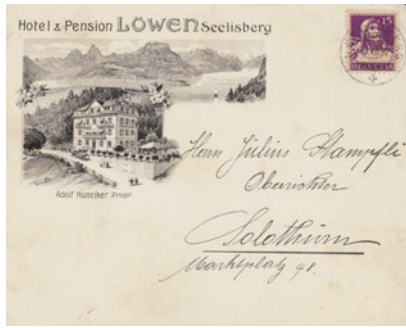 Hotel & Pension LÖWEN Seelisberg
15
HELVETIA
Adolf Hunziker Propr.
Herrn Julius Stampfli
Oberrichter
Solothurn
Marktplatz 48.